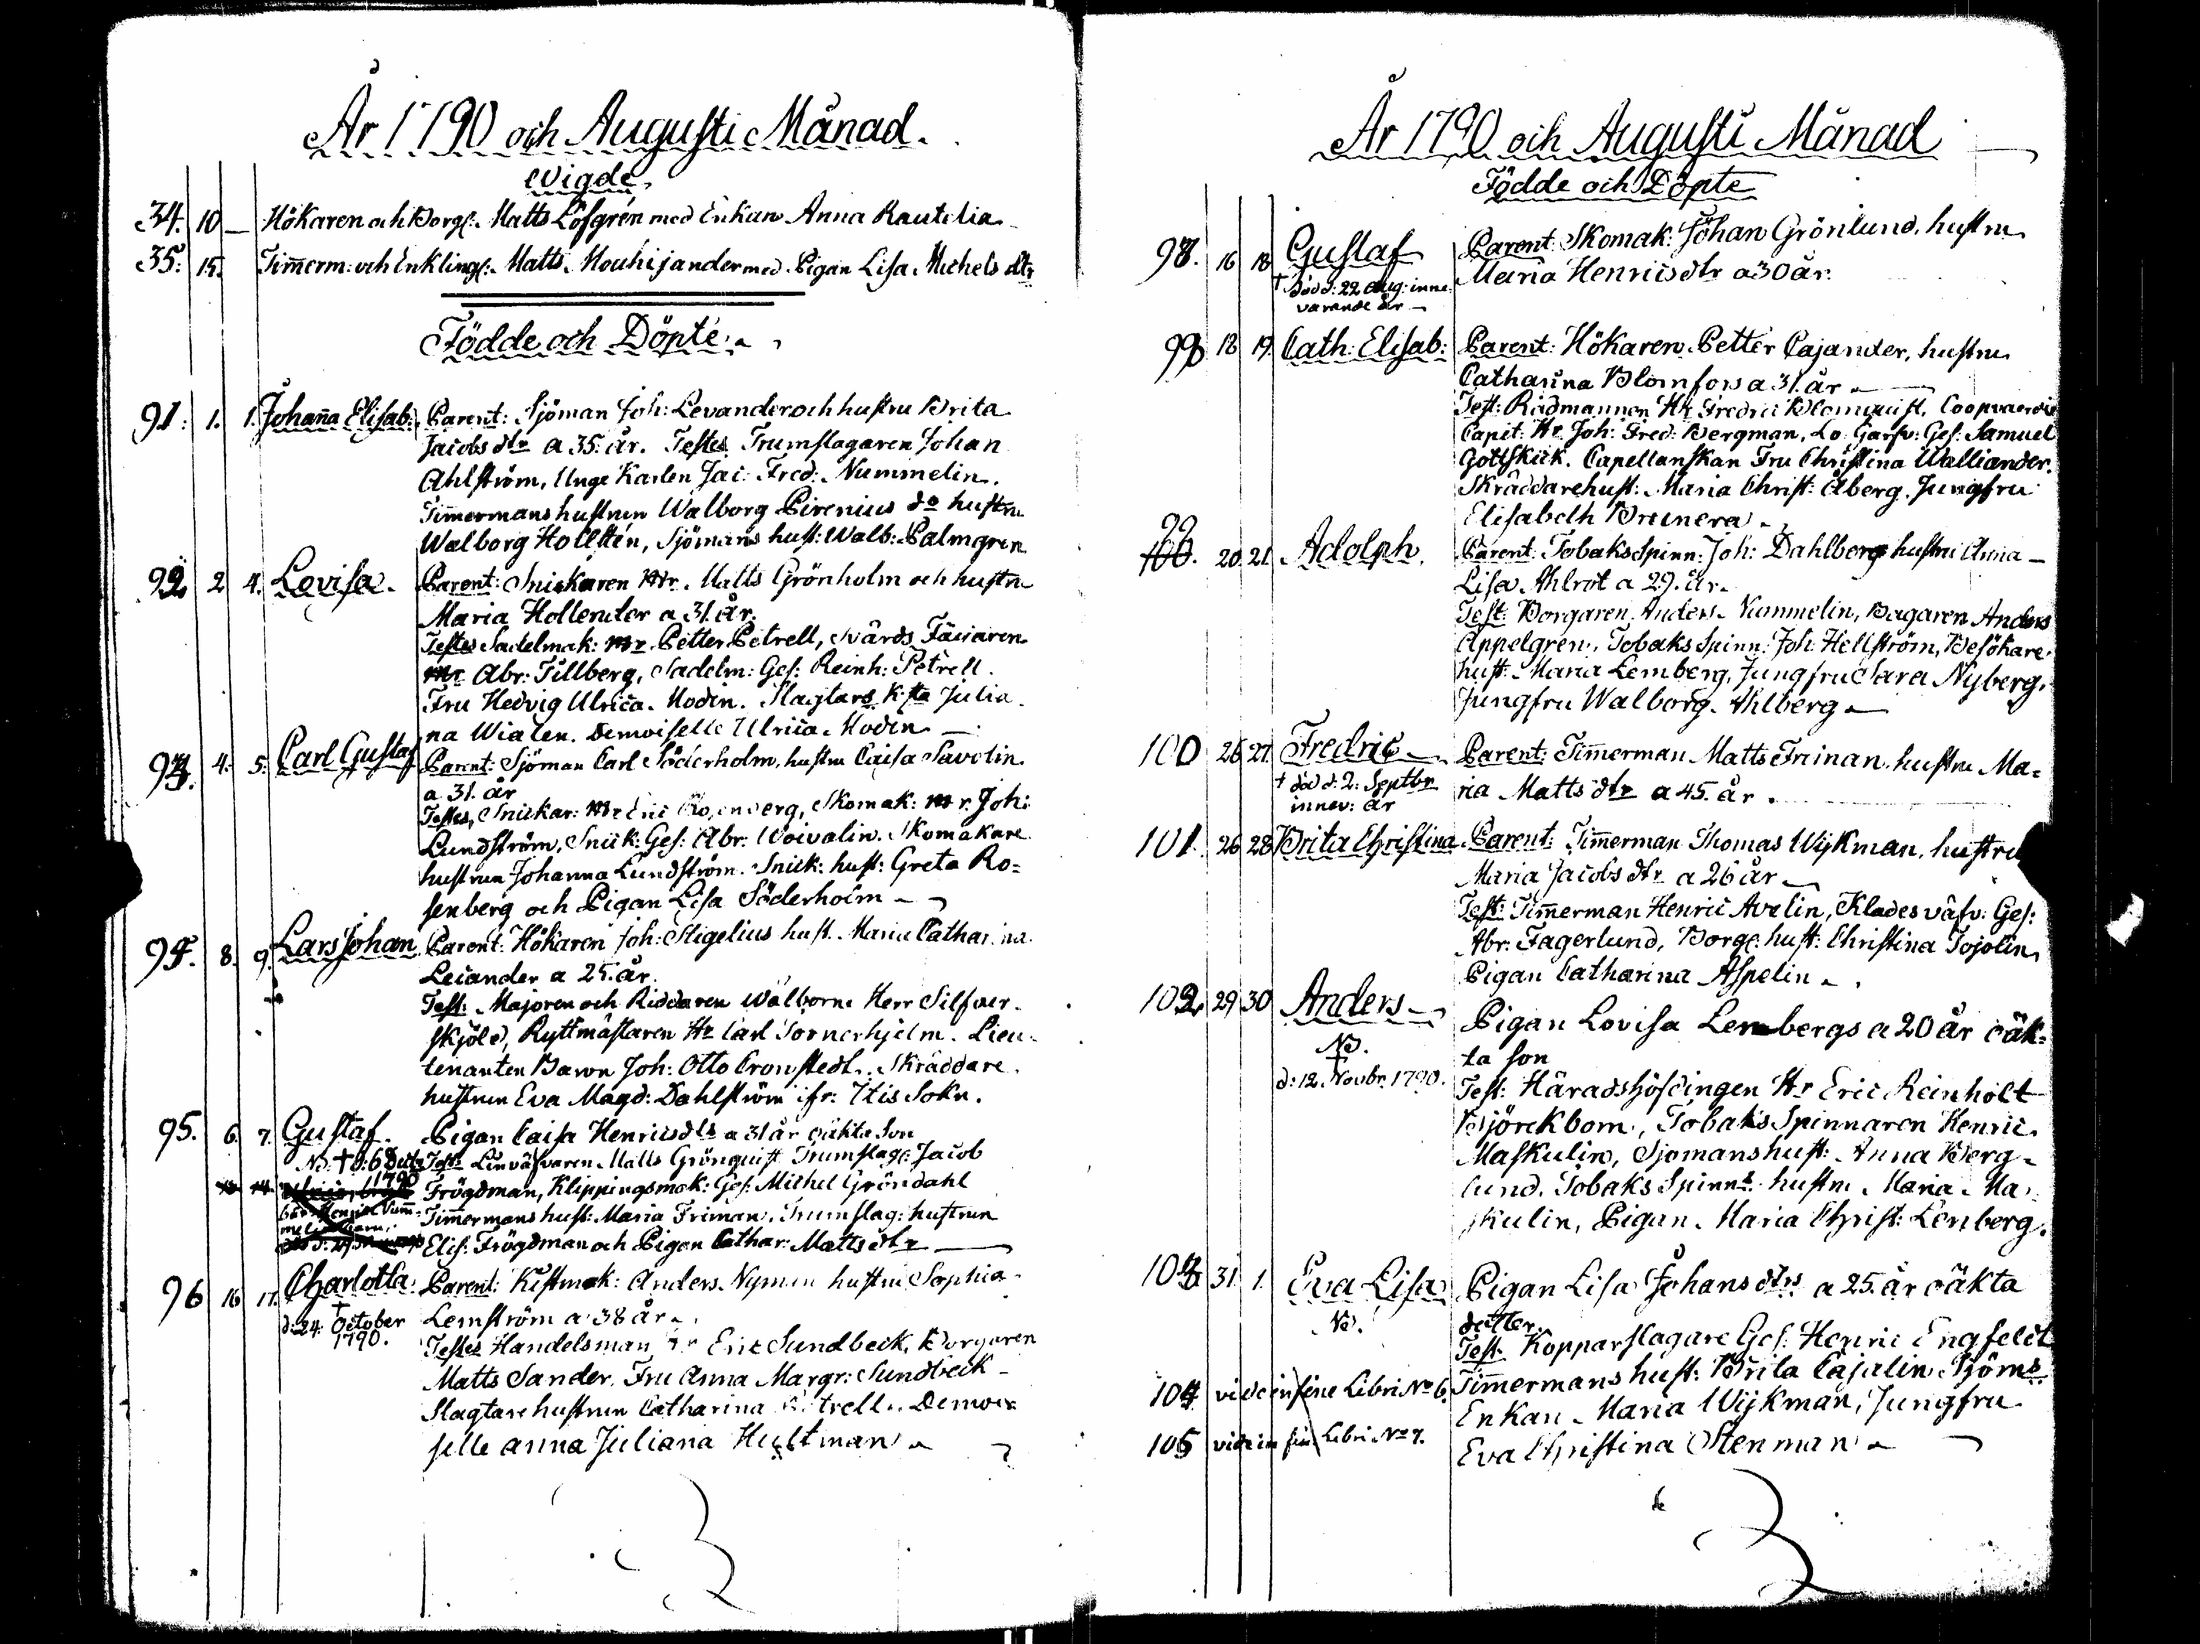 År 1790 och Augusti Månad.
Wigde
34. 10 — Hökaren och Borg: Matts Löfgrén med Enkan Anna Rautelia
35. 15. Timmerm: och Enkling: Matts Mouhijander med Pigan Lisa Michels dtr
Födde och Döpte.
91. 1. 1. Johanna Elisab: Parent: Sjöman Joh: Levander och hustru Brita
Jacobs dtr a 35. år. Testes Trumslagaren Johan
Ahlström, Unge Karlen Jac: Fred: Nummelin.
Timmermans hustrun Walborg Pirenius do hustru
Walborg Hollstén, Sjömans hust: Walb: Palmgren
92 2 4. Lovisa. Parent: Snickaren Mr. Matts Grönholm och hustru
Maria Hollender a 31. år.
Testes Sadelmak: Mr Petter Petrell, Svärds Fäjaren
Mr Abr: Tillberg, Sadelm: Ges: Reinh: Petrell.
Fru Hedvig Ulrica Modin. Slagtars k:sta Julia
na Wialen. Demoiselle Ulrica Modin —
93. 4. 5. Carl Gustaf Parent: Sjöman Carl Söderholm, hustru Caisa Savolin
a 31. år
Testes, Snickar: Mr Eric Rosenberg, Skomak: Mr. Joh:
Lundström, Snick: Ges: Abr: Woivalin. Skomakare
hustrun Johanna Lundström. Snick: hust: Greta Ro=
senberg och Pigan Lisa Söderholm —
94. 8. 9. Lars Johan Parent: Hökaren Joh: Stigelius hust. Maria Catharina
Leiander a 25. år.
Test: Majoren och Riddaren Wälborne Herr Silfver
skjöld, Ryttmästaren Hr Carl Tornerhjelm. Lieu=
tenanten Baron Joh: Otto Cronstedt. Skräddare
hustrun Eva Magd: Dahlström ifr: Itis Sokn.
95. 6. 7. Gustaf. Pigan Caisa Henricsdtr a 31 år oäkta Son
No: † d: 6 1790 Test: Linväfvaren Matts Grönquist Trumslag: Jacob
Frögdman, Klippingsmak: Ges: Michel Gröndahl
Timmermans hust: Maria Friman, Trumslag: hustrun
Elis: Frögdman och Pigan Cathar: Matts dtr —
96 16 17. Charlotta Parent: Kistmak: Anders Nyman hustru Sophia
† d: 24 October 1790. Lemström a 38 år
Testes Handelsman Hr Eric Sundbeck, Borgaren
Matts Sander. Fru Anna Margr: Sundbeck
Slagtare hustrun Catharina Petrell. Demoi
selle Anna Juliana Hultman
År 1790 och Augusti Månad
Födde och Döpte
97. 16 18 Gustaf Parent: Skomak: Johan Grönlund, hustru
† död d: 22 Aug: inne varande år — Maria Henricsdtr a 30 år.
98 18 19. Cath: Elisab: Parent: Hökaren Petter Cajander, hustru
Catharina Blomfors a 31. år —
Test: Rådmannen Hr Fredric Blomquist, Coopvaerdie
Capit: Hr Joh: Fred: Bergman, Lo Garfv: Ges: Samuel
Gottskick. Capellanskan Fru Christina Walliander.
Skräddarehust: Maria Christ: Åberg. Jungfru
Elisabeth Brunera.
99 100. 20 21. Adolph. Parent: Tobaks Spinn: Joh: Dahlberg hustru Anna —
Lisa Ahlrot a 29. år.
Test: Borgaren Anders Nummelin, Bagaren Anders
Appelgren, Tobaks Spinn: Joh: Hellström, Besökare
hust: Maria Lemberg, Jungfru Sara Nyberg,
Jungfru Walborg Ahlberg —
100 26 27. Fredric — Parent: Timmerman Matts Friman, hustru Ma=
† död d: 2: Septbr innev: år ria Matts dtr a 45. år.
101. 26 28 Brita Christina Parent: Timmerman Thomas Wijkman, hustru
Maria Jacobs dtr a 26 år —
Test: Timmerman Henric Avelin, Klädesväfv: Ges:
Abr: Fagerlund, Borg: hust: Christina Jojolin,
Pigan Catharina Aspelin.
102 29 30 Anders — Pigan Lovisa Lembergs a 20 år oäk=
No. † d: 12 Novbr. 1790. ta son
Test: Häradshöfdingen Hr Eric Reinholt
Björckbom, Tobaks Spinnaren Henric
Maskulin, Sjömans hust: Anna Berg=
lund. Tobaks Spinn: hustru Maria Ma
skulin, Pigan Maria Christ: Lenberg.
103 31. 1. Eva Lisa Pigan Lisa Johans dtrs a 25. år oäkta
No. dotter.
Test: Kopparslagare Ges: Henric Engfeldt
Timmermans hust: Brita Cajalin Sjöms
104 vide in fine Libri No 6. Enkan Maria Wijkman, Jungfru
105 vide in fine Libri No 7. Eva Christina Stenman